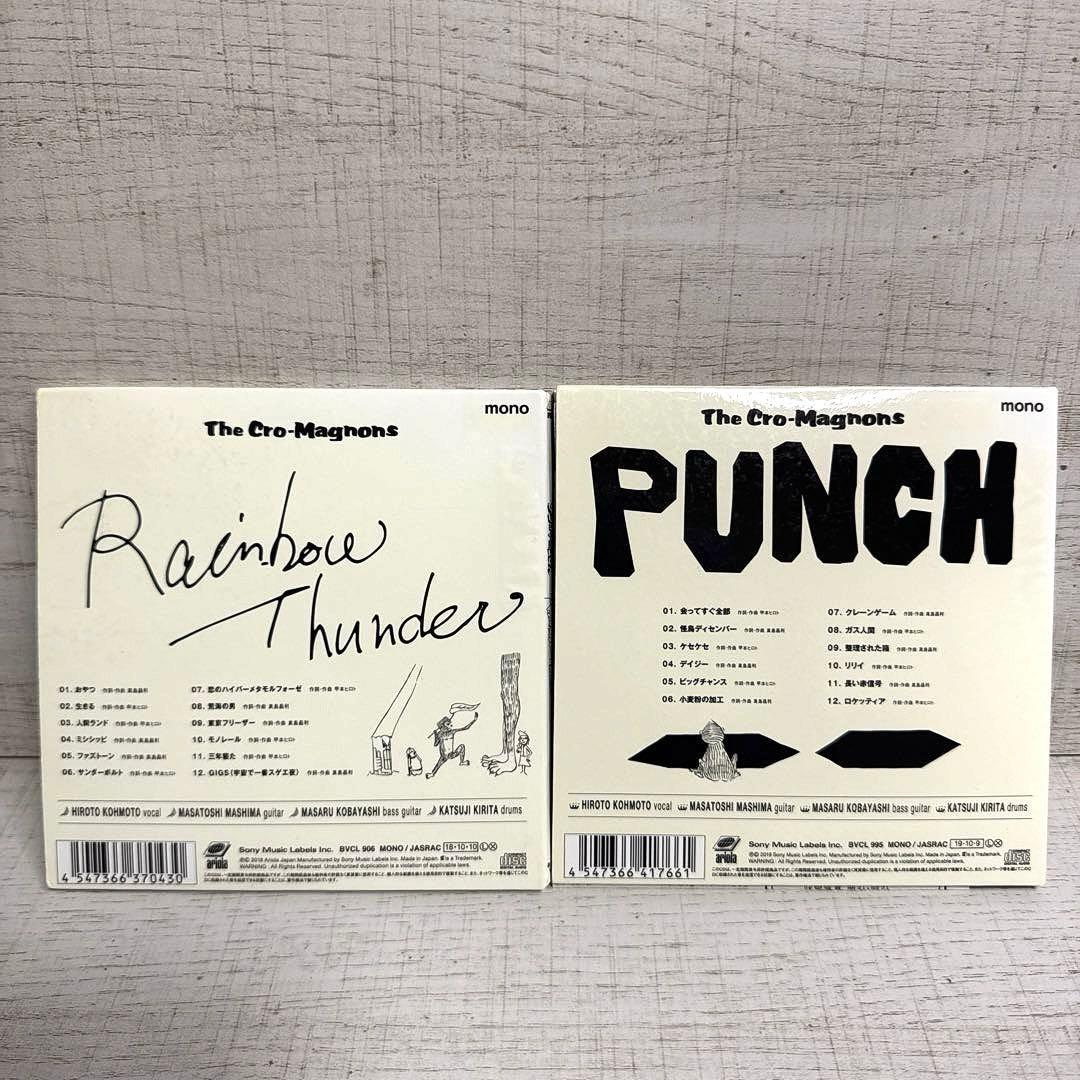 mono
The Cro-Magnons
Rainbow
Thunder
01. おやつ 作詞・作曲 真島昌利
02. 生きる 作詞・作曲 甲本ヒロト
03. 人間ランド 作詞・作曲 甲本ヒロト
04. ミシシッピ 作詞・作曲 真島昌利
05. ファズトーン 作詞・作曲 真島昌利
06. サンダーボルト 作詞・作曲 甲本ヒロト
07. 恋のハイパーメタモルフォーゼ 作詞・作曲 甲本ヒロト
08. 荒海の男 作詞・作曲 真島昌利
09. 東京フリーザー 作詞・作曲 真島昌利
10. モノレール 作詞・作曲 甲本ヒロト
11. 三年寝た 作詞・作曲 甲本ヒロト
12. GIGS（宇宙で一番スゲエ夜） 作詞・作曲 真島昌利
HIROTO KOHMOTO vocal MASATOSHI MASHIMA guitar MASARU KOBAYASHI bass guitar KATSUJI KIRITA drums
4 547366 370430
ariola
Sony Music Labels Inc. BVCL 906 MONO / JASRAC 18・10・10 L X
℗© 2018 Ariola Japan. Manufactured by Sony Music Labels Inc. Made in Japan. is a Trademark.
WARNING : All Rights Reserved. Unauthorized duplication is a violation of applicable laws.
mono
The Cro-Magnons
PUNCH
01. 会ってすぐ全部 作詞・作曲 甲本ヒロト
02. 怪鳥ディセンバー 作詞・作曲 真島昌利
03. ケセケセ 作詞・作曲 甲本ヒロト
04. デイジー 作詞・作曲 真島昌利
05. ビッグチャンス 作詞・作曲 甲本ヒロト
06. 小麦粉の加工 作詞・作曲 真島昌利
07. クレーンゲーム 作詞・作曲 真島昌利
08. ガス人間 作詞・作曲 甲本ヒロト
09. 整理された箱 作詞・作曲 真島昌利
10. リリイ 作詞・作曲 甲本ヒロト
11. 長い赤信号 作詞・作曲 真島昌利
12. ロケッティア 作詞・作曲 甲本ヒロト
HIROTO KOHMOTO vocal MASATOSHI MASHIMA guitar MASARU KOBAYASHI bass guitar KATSUJI KIRITA drums
4 547366 417661
ariola
Sony Music Labels Inc. BVCL 995 MONO / JASRAC 19・10・9 L X
℗© 2019 Sony Music Labels Inc. Manufactured by Sony Music Labels Inc. Made in Japan. is a Trademark.
WARNING : All Rights Reserved. Unauthorized duplication is a violation of applicable laws.